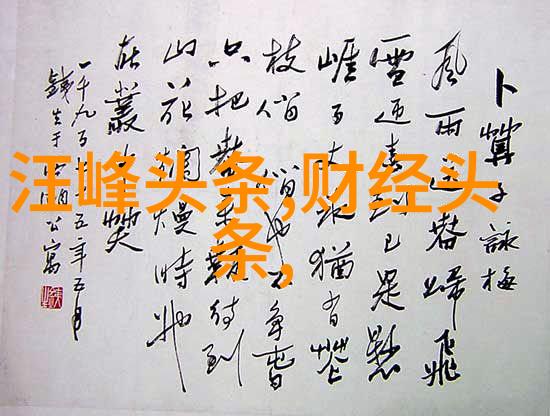 汪峰头条,财经头
条,
卜算子詠梅
風雨送春歸飛
雪迎春到已是懸
崖百丈冰猶有花
枝俏俏也不爭春
只把春來報待到
山花爛熳時她
在叢中笑
一千九百七十五年五月
于湖公寓